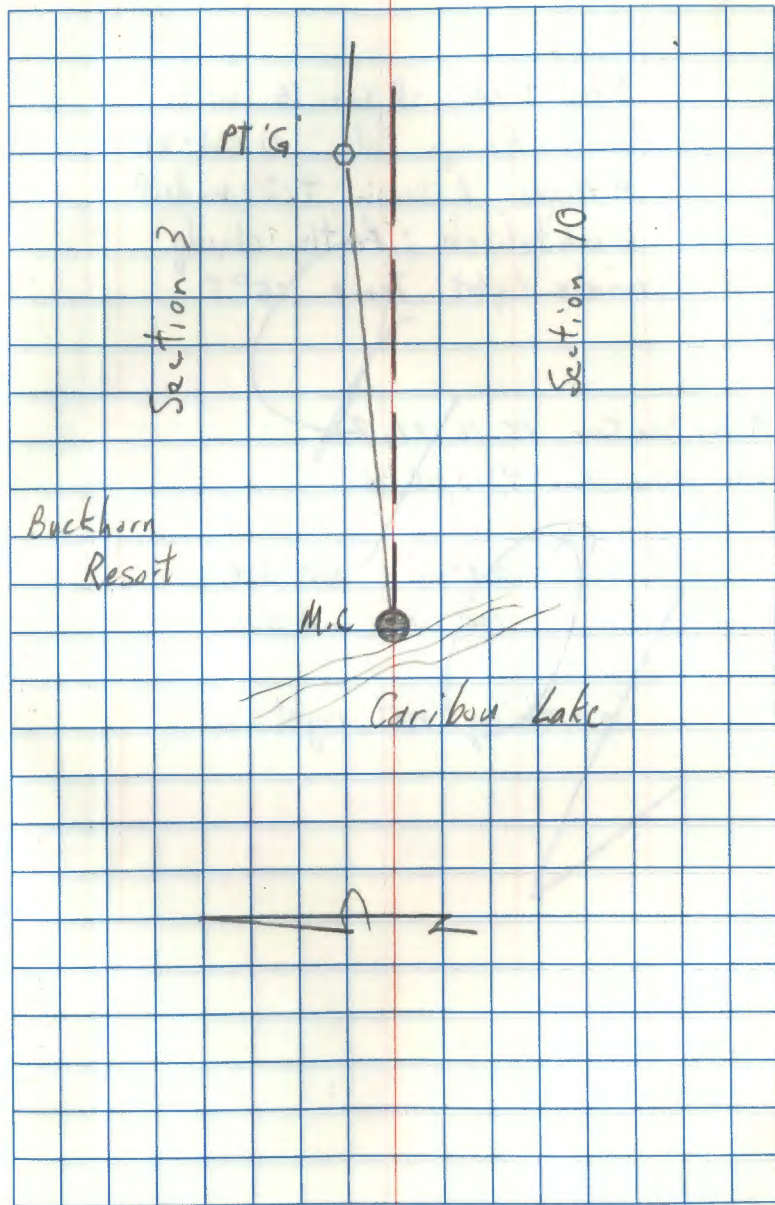 PT 'G'
Section 3
Section 10
Buckhorn
Resort
M.C
Caribou Lake
N